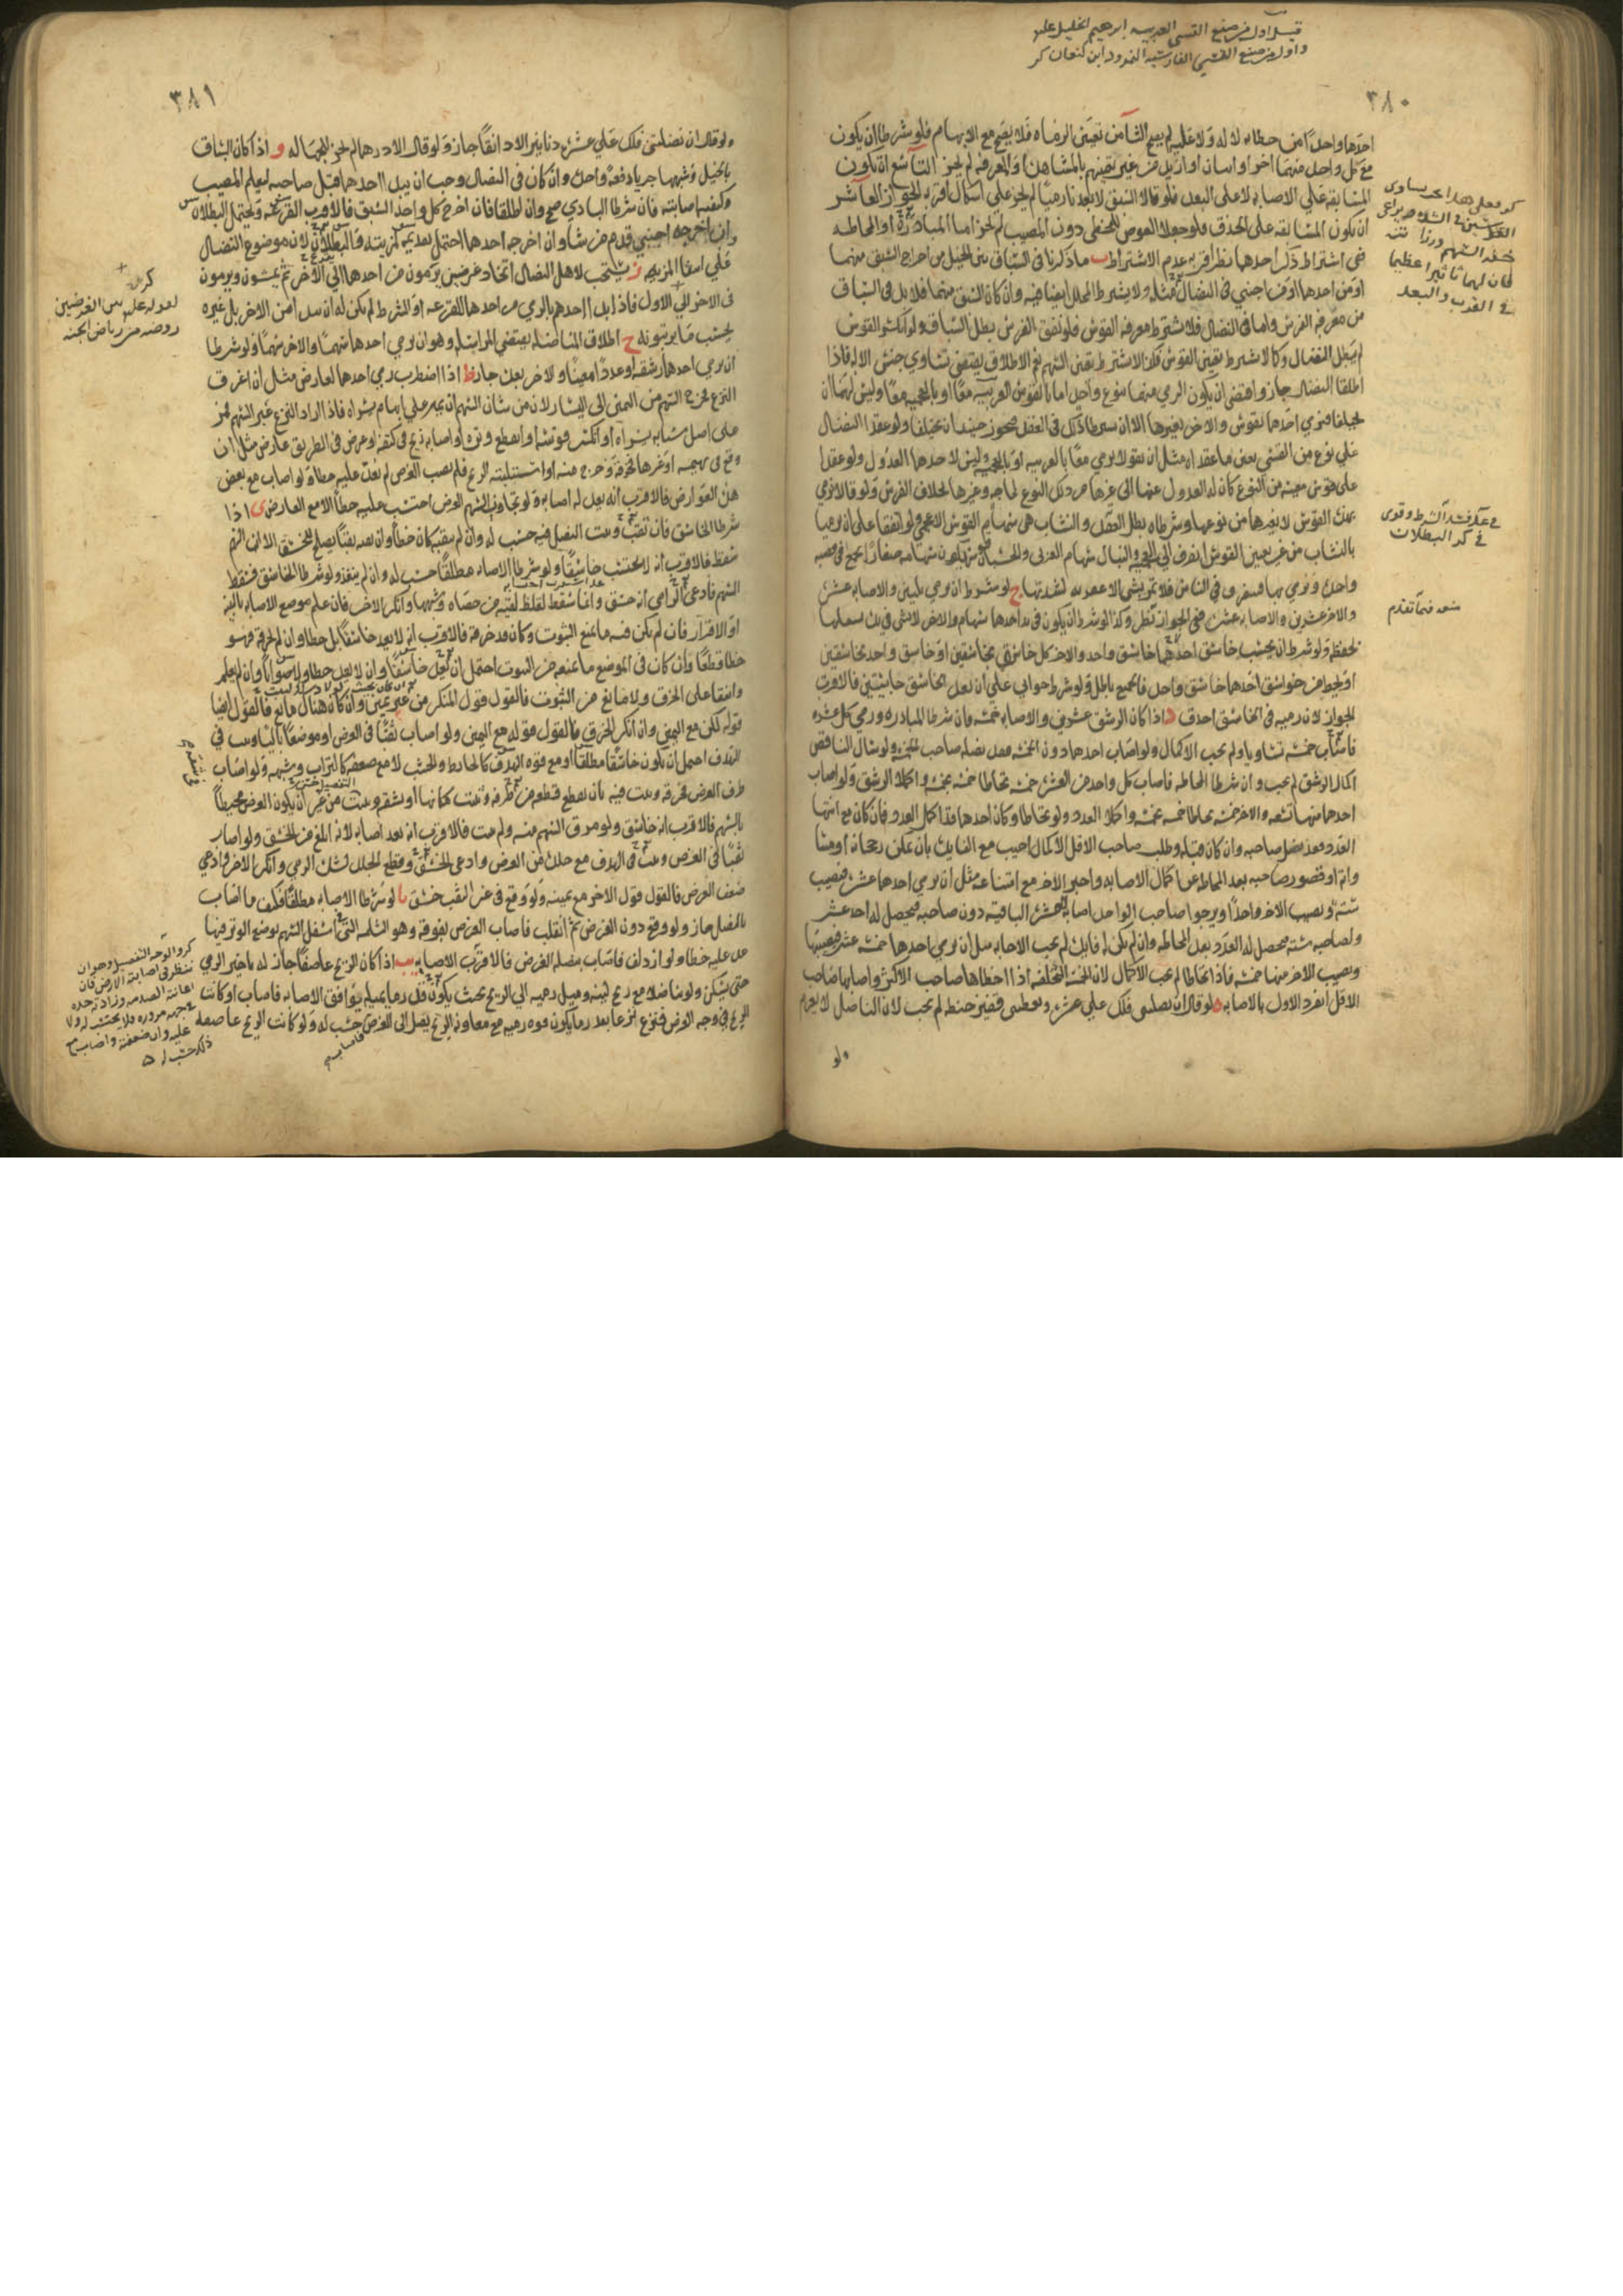 قيل اول من صنع القسي العربيه ابرهيم الخليل عليه
واول من صنع القسي الفارسيه النمرود ابن كنعان كر
٣٨٠
احدهما واحدا من خطاه لا له ولا عليه لم يصح الثامن تعيين الرماه فلا يصح مع الابهام فلو شرطا ان يكون
مع كل واحد منهما اخر او اثنان او ازيد من غير تعينهم بالمشاهدة او المعرفه لم يجز التاسع ان يكون
المسابقه علي الاصابه لا على البعد فلو قالا السبق لابعدنا رميا لم يجز على اشكال اقربه الجواز العاشر
ان يكون المسابقه على الحذق فلو جعلا العوض للمخطى دون المصيب لم تجز اما المبادره او المحاطه
ففي اشتراط ذكر احدهما نظر اقربه عدم الاشتراط ب ما ذكرنا في السباق بين الخيل من اخراج السبق منهما
او من احدهما او من اجنبي في النضال مثله ولا يشترط المحلل ايضا فيه وان كان السبق منهما فلا بد في السباق
من معرفه الفرس واما في النضال فلا يشترط معرفه القوس فلو نفق الفرس بطل السباق ولو انكسر القوس
لم يبطل النضال وكما لا يشترط تعيين القوس فكذا لا يشترط تعين السهم نعم الاطلاق يقتضي تساوي جنس الاله فاذا
اطلقا النضال جاز واقتضى ان يكون الرمي منهما بنوع واحد اما بالقوس العربيه معا او بالعجميه معا وليس لهما ان
يختلفا فيرمي احدهما بقوس والاخر بغيرها الا ان يشترطا ذلك في العقد فيجوز حينيذ ان يختلفا ولو عقدا النضال
علي نوع من القسي تعين ما عقداه مثل ان يقولا يرمي معا بالعربيه او بالعجميه وليس لاحدهما العدول ولو عقدا
على قوس معينه من النوع كان له العدول عنها الى غيرها من ذلك النوع لحاجه وغيرها بخلاف الفرس ولو قالا نرمي
بهذه القوس لا بغيرها من نوعها وشرطاه بطل العقد والنشاب هي سهام القوس العجمي ولو اتفقا على ان يرميا
بالنشاب من غير تعيين القوس انصرف الى العجمي والنبال سهام العربي والحسبان قوس يكون سهامه صغارا يجمع في قصبه
واحدة ويرمي بها فيتفرق في الناس فلا تمر بشي الا عقرته لشدتها ج لو شرطا ان يرمي ثلثين والاصابه عشره
والاخر عشرين والاصابه عشره ففي الجواز نظر وكذا لو شرط ان يكون في يد احدهما سهام والاخر لا شى في يده يشغلها
بحفظه ولو شرط ان يحتسب خاسق احدهما خاسق واحد والاخر كل خاسق بخاسقين او خاسق واحد بخاسقين
او يحط من خواسق احدهما خاسق واحد فالجميع باطل ولو شرط حوابي علي ان يعد الخاسق حابيين فالاقرب
الجواز لان رميه في الخاسق احدق د اذا كان الرشق عشرين والاصابه خمسه فان شرطا المبادره ورمى كل عشره
فاصاب خمسه تساويا ولم يجب الاكمال ولو اصاب احدهما دون الخمسه فقد نضله صاحب الخمسه ولو سال الناقص
اكمال الرشق لم يجب وان شرطا المحاطه فاصاب كل واحد من العشره خمسه تحاطا خمسه بخمسه واكملا الرشق ولو اصاب
احدهما منها تسعه والاخر خمسه تحاطا خمسه بخمسه واكملا العدد ولو تحاطا وكان احدهما قد اكمل العدد فان كان مع انتها
العدد فقد نضل صاحبه وان كان قبله وطلب صاحب الاقل الاكمال اجيب مع الفايده بان يمكن رجحانه او مساواته
واما قصور صاحبه بعد المحاطه عن اكمال الاصابه واجبر الاخر مع امتناعه مثل ان يرمي احدهما عشره فيصيب
سته ويصيب الاخر واحدا ويرجوا صاحب الواحد اصابه العشره الباقيه دون صاحبه فيحصل له احد عشر
ولصاحبه سته فيحصل له العدد بعد المحاطه وان لم يكن له فايده لم يجب الاجابه مثل ان يرمي احدهما خمسه عشر فيصيبها
ويصيب الاخر منها خمسه فاذا تحاطا لم يجب الاكمال لان الخمسه المتخلفه اذا اخطاها صاحب الاكثر واصابها صاحب
الاقل انفرد الاول بالاصابه ه لو قال ان نضلتني فلك علي عشره وتعطيني قفيز حنطه لم يجب لان الناضل لا يغرم
ولو
كر فعلى هذا يجب تساوى
القوسين في الشده ويراعى
خفة السهم ورزانته
فان لهما تاثيرا عظيما
في القرب والبعد
في عد فسد الشرط وقوى
في كر البطلان
منعه فيما تقدم
٣٨١
ولو قال ان نضلتني فلك علي عشره دنانير الا دانقا جاز ولو قال الا درهما لم يجز للجهاله و اذا كان السباق
بالخيل وشبهها جريا دفعه واحده وان كان في النضال وجب ان يبدا احدهما قبل صاحبه ليعلم المصيب
وكيفيه اصابته فان شرطا البادي صح وان اطلقا فان اخرج كل واحد السبق فالاقرب القرعه ويحتمل البطلان
وان اخرجه اجنبي قدم من شا وان اخرجه احدهما احتمل تقديمه لمزيته والبطلان لان موضوع النضال
علي انتفا المزيه ز يستحب لاهل النضال اتخاذ غرضين يرمون من احدهما الي الاخر ثم يمشون ويرمون
في الاخر الي الاول فاذا بدا احدهما بالرمي من احدهما بالقرعه او الشرط لم يكن له ان يبدا من الاخر بل غيره
بحسب ما يرتبونه ح اطلاق المناضله يقتضي المراسله وهو ان يرمي احدهما سهما والاخر سهما ولو شرطا
ان يرمي احدهما رشقه او عددا معينا والاخر بعده جاز ط اذا اضطرب رمي احدهما لعارض مثل ان اغرق
النزع فخرج السهم من اليمنى الى اليسار لان من شان السهم ان يمر علي ابهام يسراه فاذا زاد النزع عبر السهم فمر
على اصل سبابه يسراه او انكسر قوسه او انقطع وتره او اصابه ريح في كتفه او عرض في الطريق عارض مثل ان
وقع في بهيمه او غيرها فخرقه وخرج منه او استقبلته الريح فلم يصب الغرض لم يعد عليه خطا ولو اصاب مع بعض
هذه العوارض فالاقرب انه يعد له اصابه ولو تجاوز السهم الغرض احتسب عليه خطا الا مع العارض ى اذا
شرطا الخاسق فان ثقب وثبت النصل فيه حسب له وان لم يثقب كان خطا وان ثقبه ثقبا يصلح للخسق الا ان السهم
سقط فالاقرب انه لا يحتسب خاسقا ولو شرطا الاصابه مطلقا حسب له وان لم ينفذ ولو شرطا الخاسق فسقط
السهم فادعى الرامي انه خسق وانما سقط لغلظ لقيه من حصاه وشبهها وانكر الاخر فان علم موضع الاصابه بالبينه
او الاقرار فان لم يكن فيه ما يمنع الثبوت وكان قد خرقه فالاقرب انه لا يعد خاسقا بل خطا وان لم يخرقه فهو
خطا قطعا وان كان في الموضع ما يمنعه من الثبوت احتمل ان يعد خاسقا وان لا يعد خطا ولا صوابا وان لم يعلم
واتفقا على الخرق ولا مانع من الثبوت فالقول قول المنكر من غير يمين وان كان هناك مانع فالقول ايضا
قوله لكن مع اليمين وان انكر الخرق فالقول قوله مع اليمين ولو اصاب ثقبا في الغرض او موضعا باليا وثبت في
الهدف احتمل ان يكون خاسقا مطلقا او مع قوه الهدف كالحايط والخشب لا مع ضعفه كالتراب وشبهه ولو اصاب
طرف الغرض فخرقه وثبت فيه بان يقطع قطعه من طرفه وثبت مكانها او يشقه ويثبت من غير ان يكون الغرض محيطا
بالسهم فالاقرب انه خاسق ولو مرق السهم منه ولم يثبت فالاقرب انه يعد اصابه لانه ابلغ من الخسق ولو اصاب
ثقبا في الغرض وثبت في الهدف مع جلده من الغرض وادعى الخسق وقطع الجلد لشدة الرمي وانكر الاخر وادعى
ضعف الغرض فالقول قول الاخر مع يمينه ولو وقع في غير الثقب خسق يا لو شرطا الاصابه مطلقا فكيف ما اصاب
بالنصل جاز ولو وقع دون الغرض ثم انقلب فاصاب الغرض بفوقه وهو الثلمه التي اسفل السهم يوضع الوتر فيها
عد عليه خطا ولو ازدلف فاصاب بنصله الغرض فالاقرب الاصابه يب اذا كان الريح عاصفا جاز له تاخير الرمي
حتى يسكن ولو تناضلا مع ريح لينه ويميل رميه الي الريح بحيث يكون قدر ما يميله يوافق الاصابه فاصاب او كانت
الريح في وجه الغرض فنزع نزعا بقدر ما يكون قوه رميه مع معاونه الريح يصل الى الغرض فاصاب حسب له ولو كانت الريح عاصفه
كر
لقوله عليه بين الغرضين
روضه من رياض الجنه
كر والوجه التفصيل وهو ان
ننظر في اصابته الارض فان
اعانته الصدمه وزادته حده
ذلك حسب له